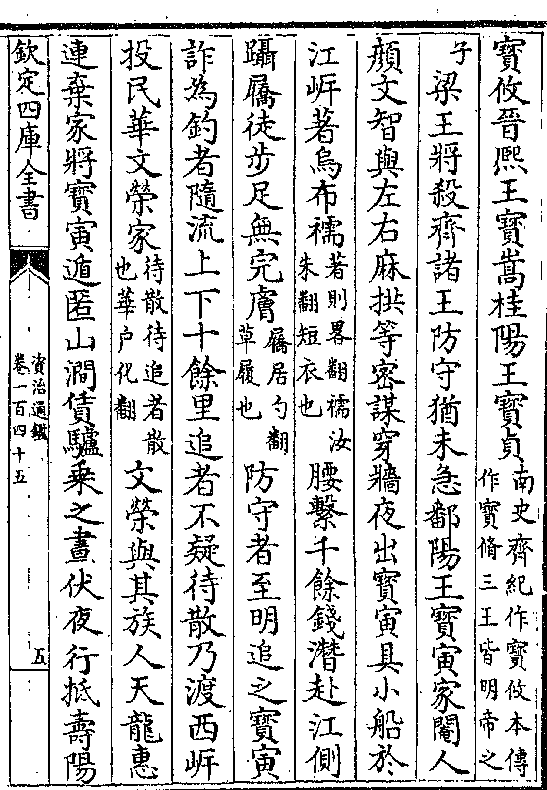 寳攸晉熈王寳嵩桂陽王寳貞南史齊紀作寳攸本傳作寳脩三王皆明帝之
子梁王將殺齊諸王防守猶未急鄱陽王寳寅家閹人
顔文智與左右麻拱等密謀穿牆夜出寳寅具小船於
江㟁著烏布襦著則畧翻襦汝朱翻短衣也腰繫千餘錢潛赴江側
躡屩徒歩足無完膚屩居勺翻草履也防守者至明追之寳寅
詐為釣者隨流上下十餘里追者不疑待散乃渡西㟁
投民華文榮家待散待追者散也華户化翻文榮與其族人天龍惠
連棄家將寳寅遁匿山澗賃驢乗之晝伏夜行抵壽陽
欽定四庫全書
資治通鑑
卷一百四十五
五